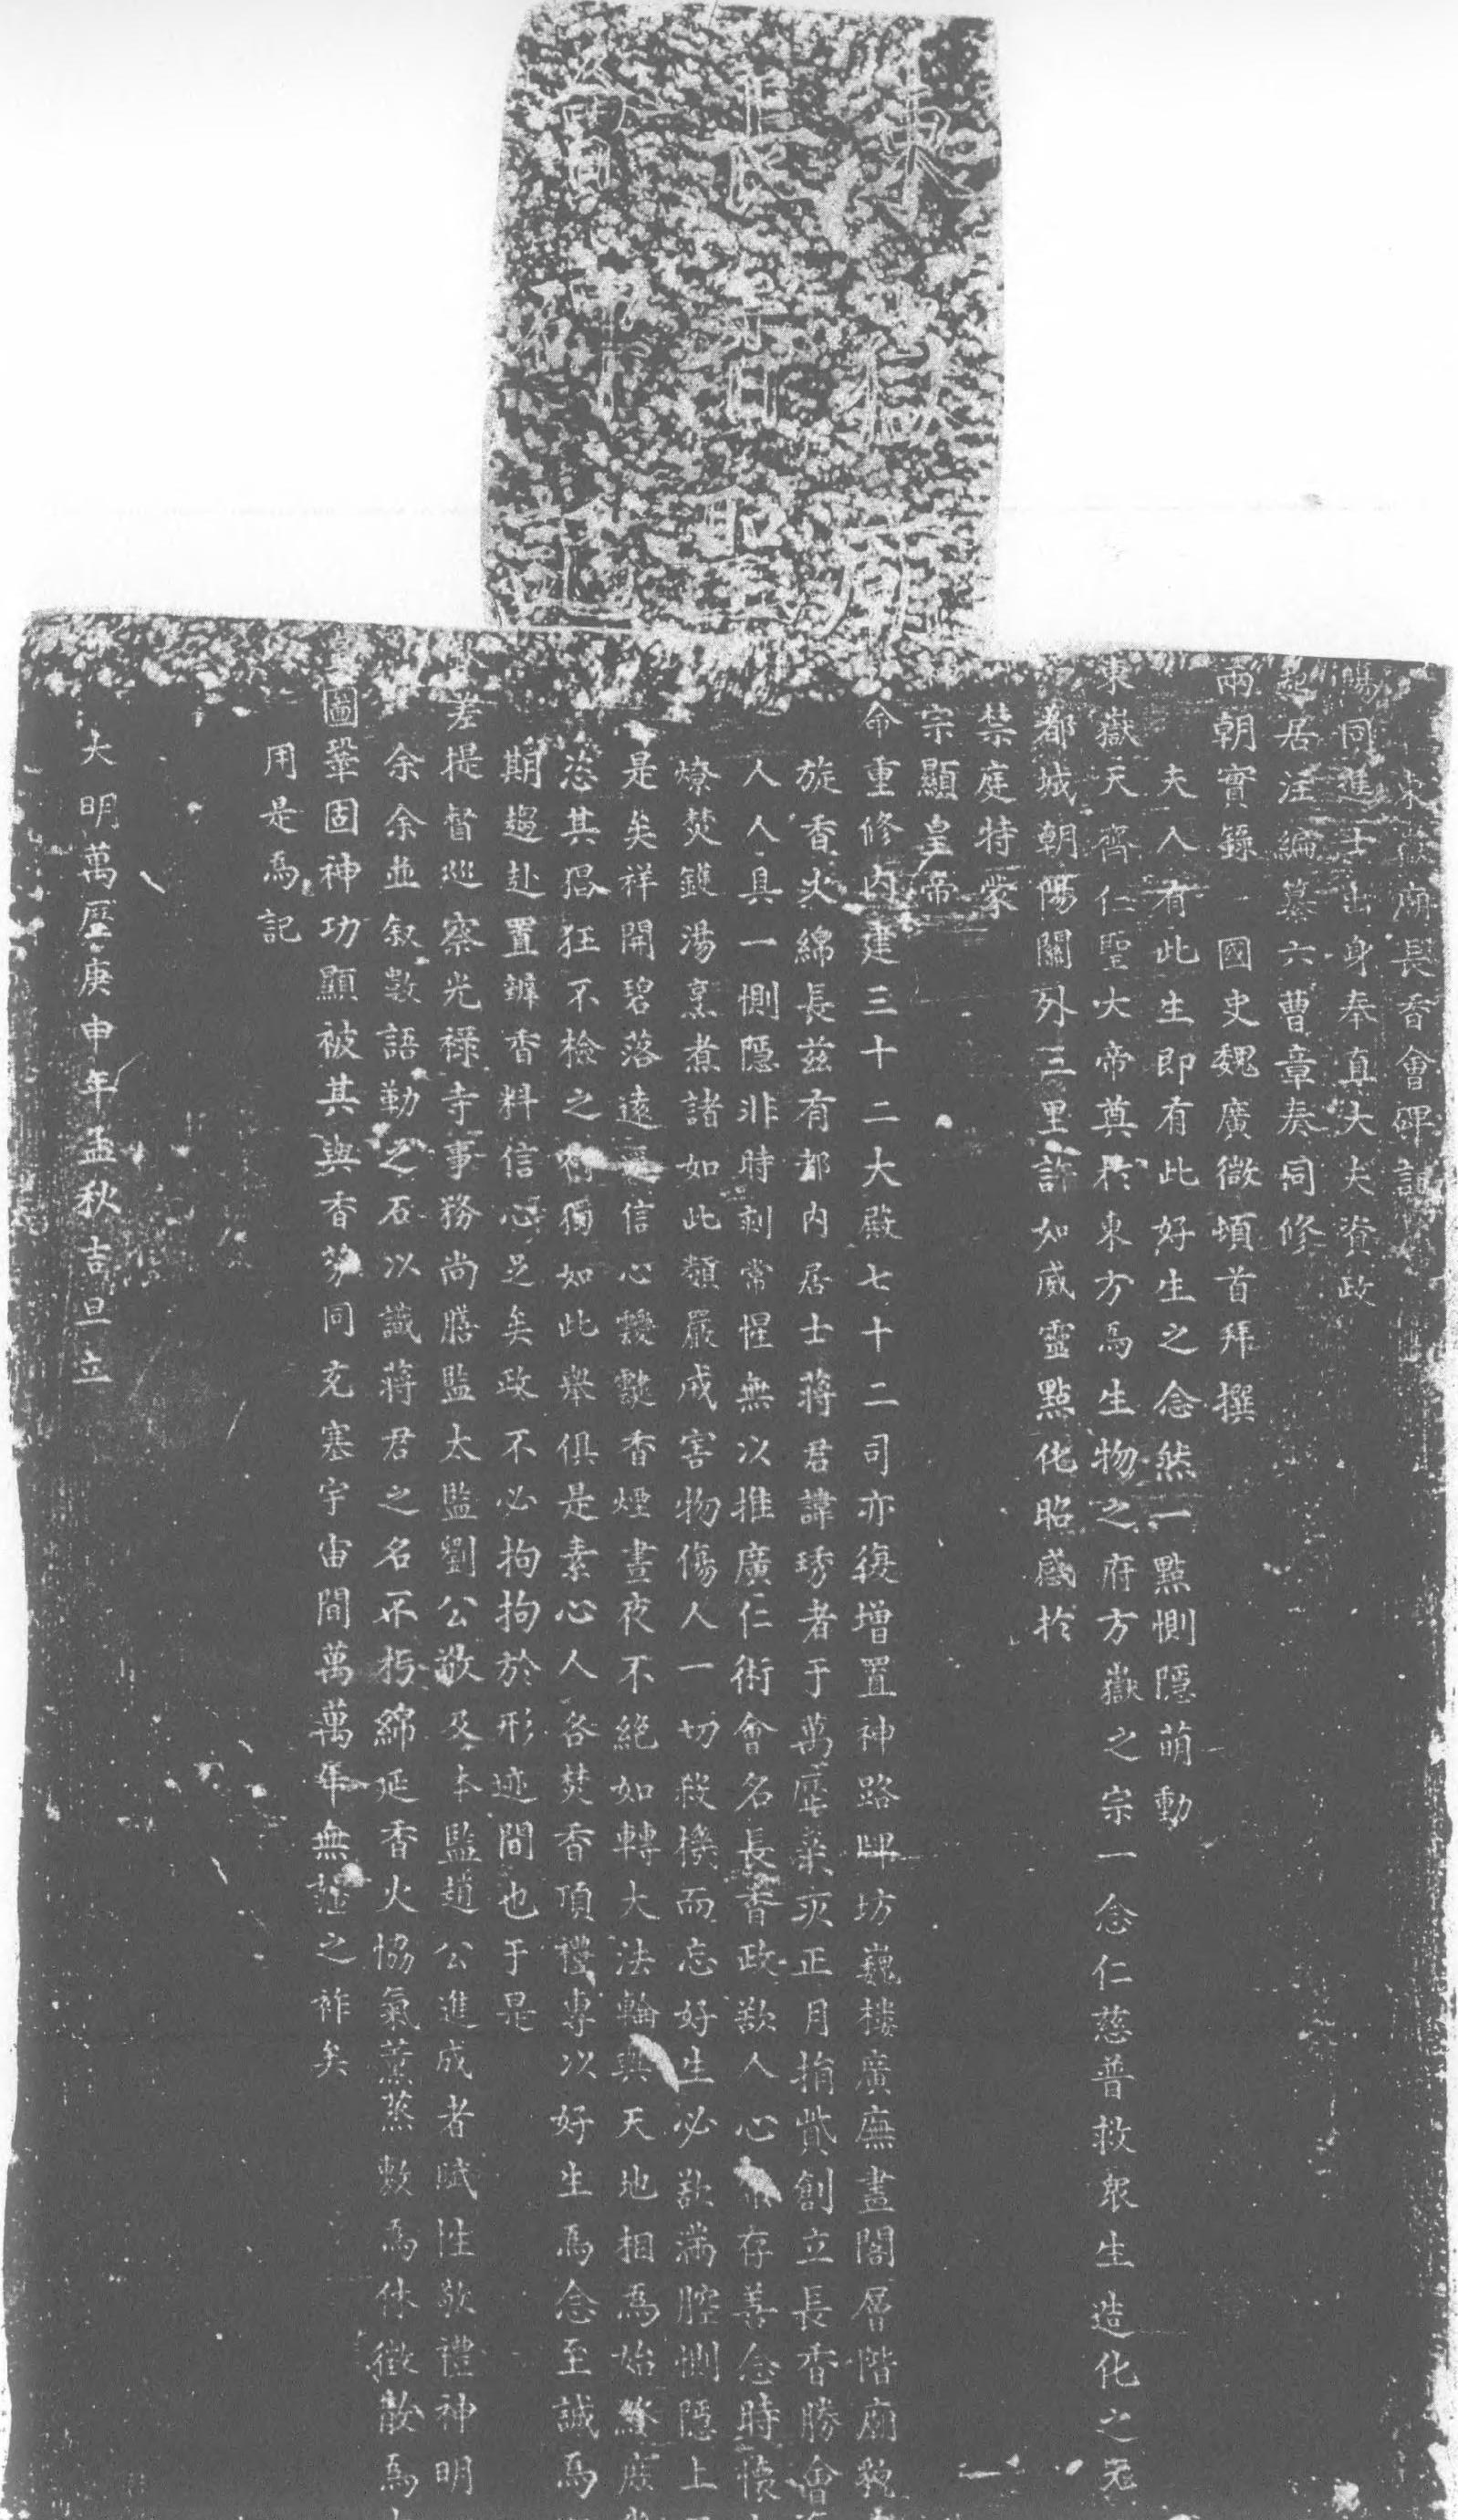 東嶽廟
長春聖
會碑記
東嶽廟長香會碑記
賜同進士出身奉直大夫資政
起居注編纂六曹章奏同修
兩朝實錄一國史魏廣微頓首拜撰
夫人有此生即有此好生之念然一點惻隱萌動
東嶽天齊仁聖大帝奠於東方爲生物之府方嶽之宗一念仁慈普救眾生造化之元
都城朝陽關外三里許如威靈點化昭感於
禁庭特蒙
宗顯皇帝
命重修內建三十二大殿七十二司亦復增置神路牌坊巍樓廣廡畫閣層階廟貌
旋香火綿長茲有都內居士蔣君諱琇者于萬曆柒 正月捐貲創立長香勝會
人人具一惻隱非時刻常惺無以推廣仁術會名長香政欲人心 存善念時懷
燎焚鑊湯烹煮諸如此類嚴戒害物傷人一切殺機而忘好生必欲滿腔惻隱上
是矣祥開碧落遠 信心靉靆香煙晝夜不絕如轉大法輪與天地相爲始終庶
恣其猖狂不檢之 獨如此舉俱是素心人各焚香頂禮專以好生爲念至誠爲
期趨赴置辦香料信心足矣政不必拘拘於形迹間也于是
差提督巡察光祿寺事務尚膳監太監劉公敬及本監趙公進成者賦性敬禮神明
余余並叙數語勒之石以識蔣君之名不朽綿延香火協氣薰蒸敷爲休徵散爲
圖鞏固神功顯被其與香芬同充塞宇宙間萬萬年無 之祚矣
用是爲記
大明萬曆庚申年孟秋吉旦立